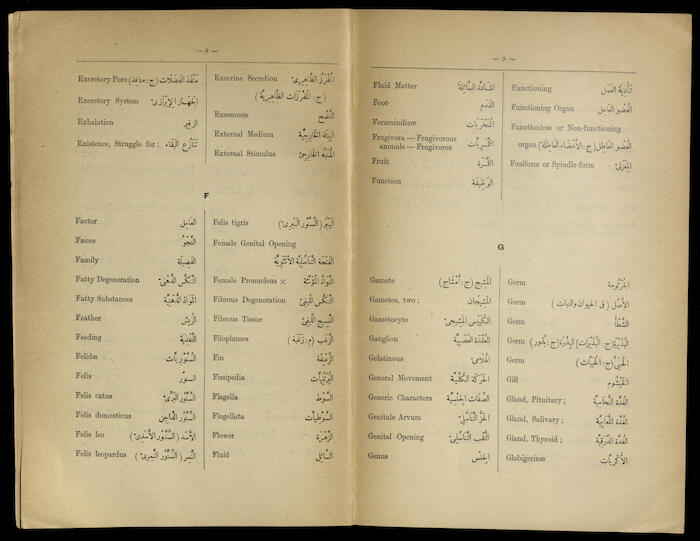 — 8 —
Excretory Pore منفذ الفضلات (ج: منافذ)
Excretory System الجهاز الإبرازي
Exhalation الزفير
Existence, Struggle for; تنازع البقاء
Exocrine Secretion المفرز الظاهري
(ج: المفرزات الظاهرية)
Exosmosis النضح
External Medium البيئة الخارجية
External Stimulus المنبه الخارجي
F
Factor العامل
Fæces النجو
Family الفصيلة
Fatty Degeneration التنكس الدهني
Fatty Substances المواد الدهنية
Feather الريش
Feeding التغذية
Felidæ السنوريات
Felis السنور
Felis catus السنور البري
Felis domesticus السنور الداجن
Felis leo الأسد (السنور الأسدي)
Felis leopardus النمر (السنور النمري)
Felis tigris الببر (السنور الببري)
Female Genital Opening
الفتحة التناسلية الأنثوية
Female Pronucleus × النواة المؤنثة
Fibrous Degeneration التنكس الليفي
Fibrous Tissue النسيج الليفي
Filoplumes الزغب (م: زغبة)
Fin الزعنفة
Fissipedia
Flagella السوط
Flagellata السوطيات
Flower الزهرة
Fluid السائل
— 9 —
Fluid Matter المادة السائلة
Foot القدم
Foraminifere المنخربات
Frugivora — Frugivorous
animals — Frugivores الثمريات
Fruit الثمرة
Function الوظيفة
Functioning تأدية العمل
Functioning Organ العضو العامل
Functionless or Non-functioning
organ العضو العاطل (ج: الأعضاء العاطلة)
Fusiform or Spindle-form المغزلي
G
Gamete المشيج (ج: أمشاج)
Gametes, two; المشيجان
Gametocyte الكييس المشيجي
Ganglion العقدة العصبية
Gelatinous الهلامي
General Movement الحركة الكلية
Generic Characters الصفات الجنسية
Genitale Arvum التناسلي
Genital Opening الثقب التناسلي
Genus الجنس
Germ الجرثومة
Germ الأصل (في الحيوان والنبات)
Germ الشطأ
Germ البذيرة (ج: البذيرات) البذرة (ج: بذور)
Germ (ج: الحييات)
Gill الخيشوم
Gland, Pituitary; الغدة النخامية
Gland, Salivary; الغدة اللعابية
Gland, Thyroid; الغدة الدرقية
Globigerinæ الأكريات